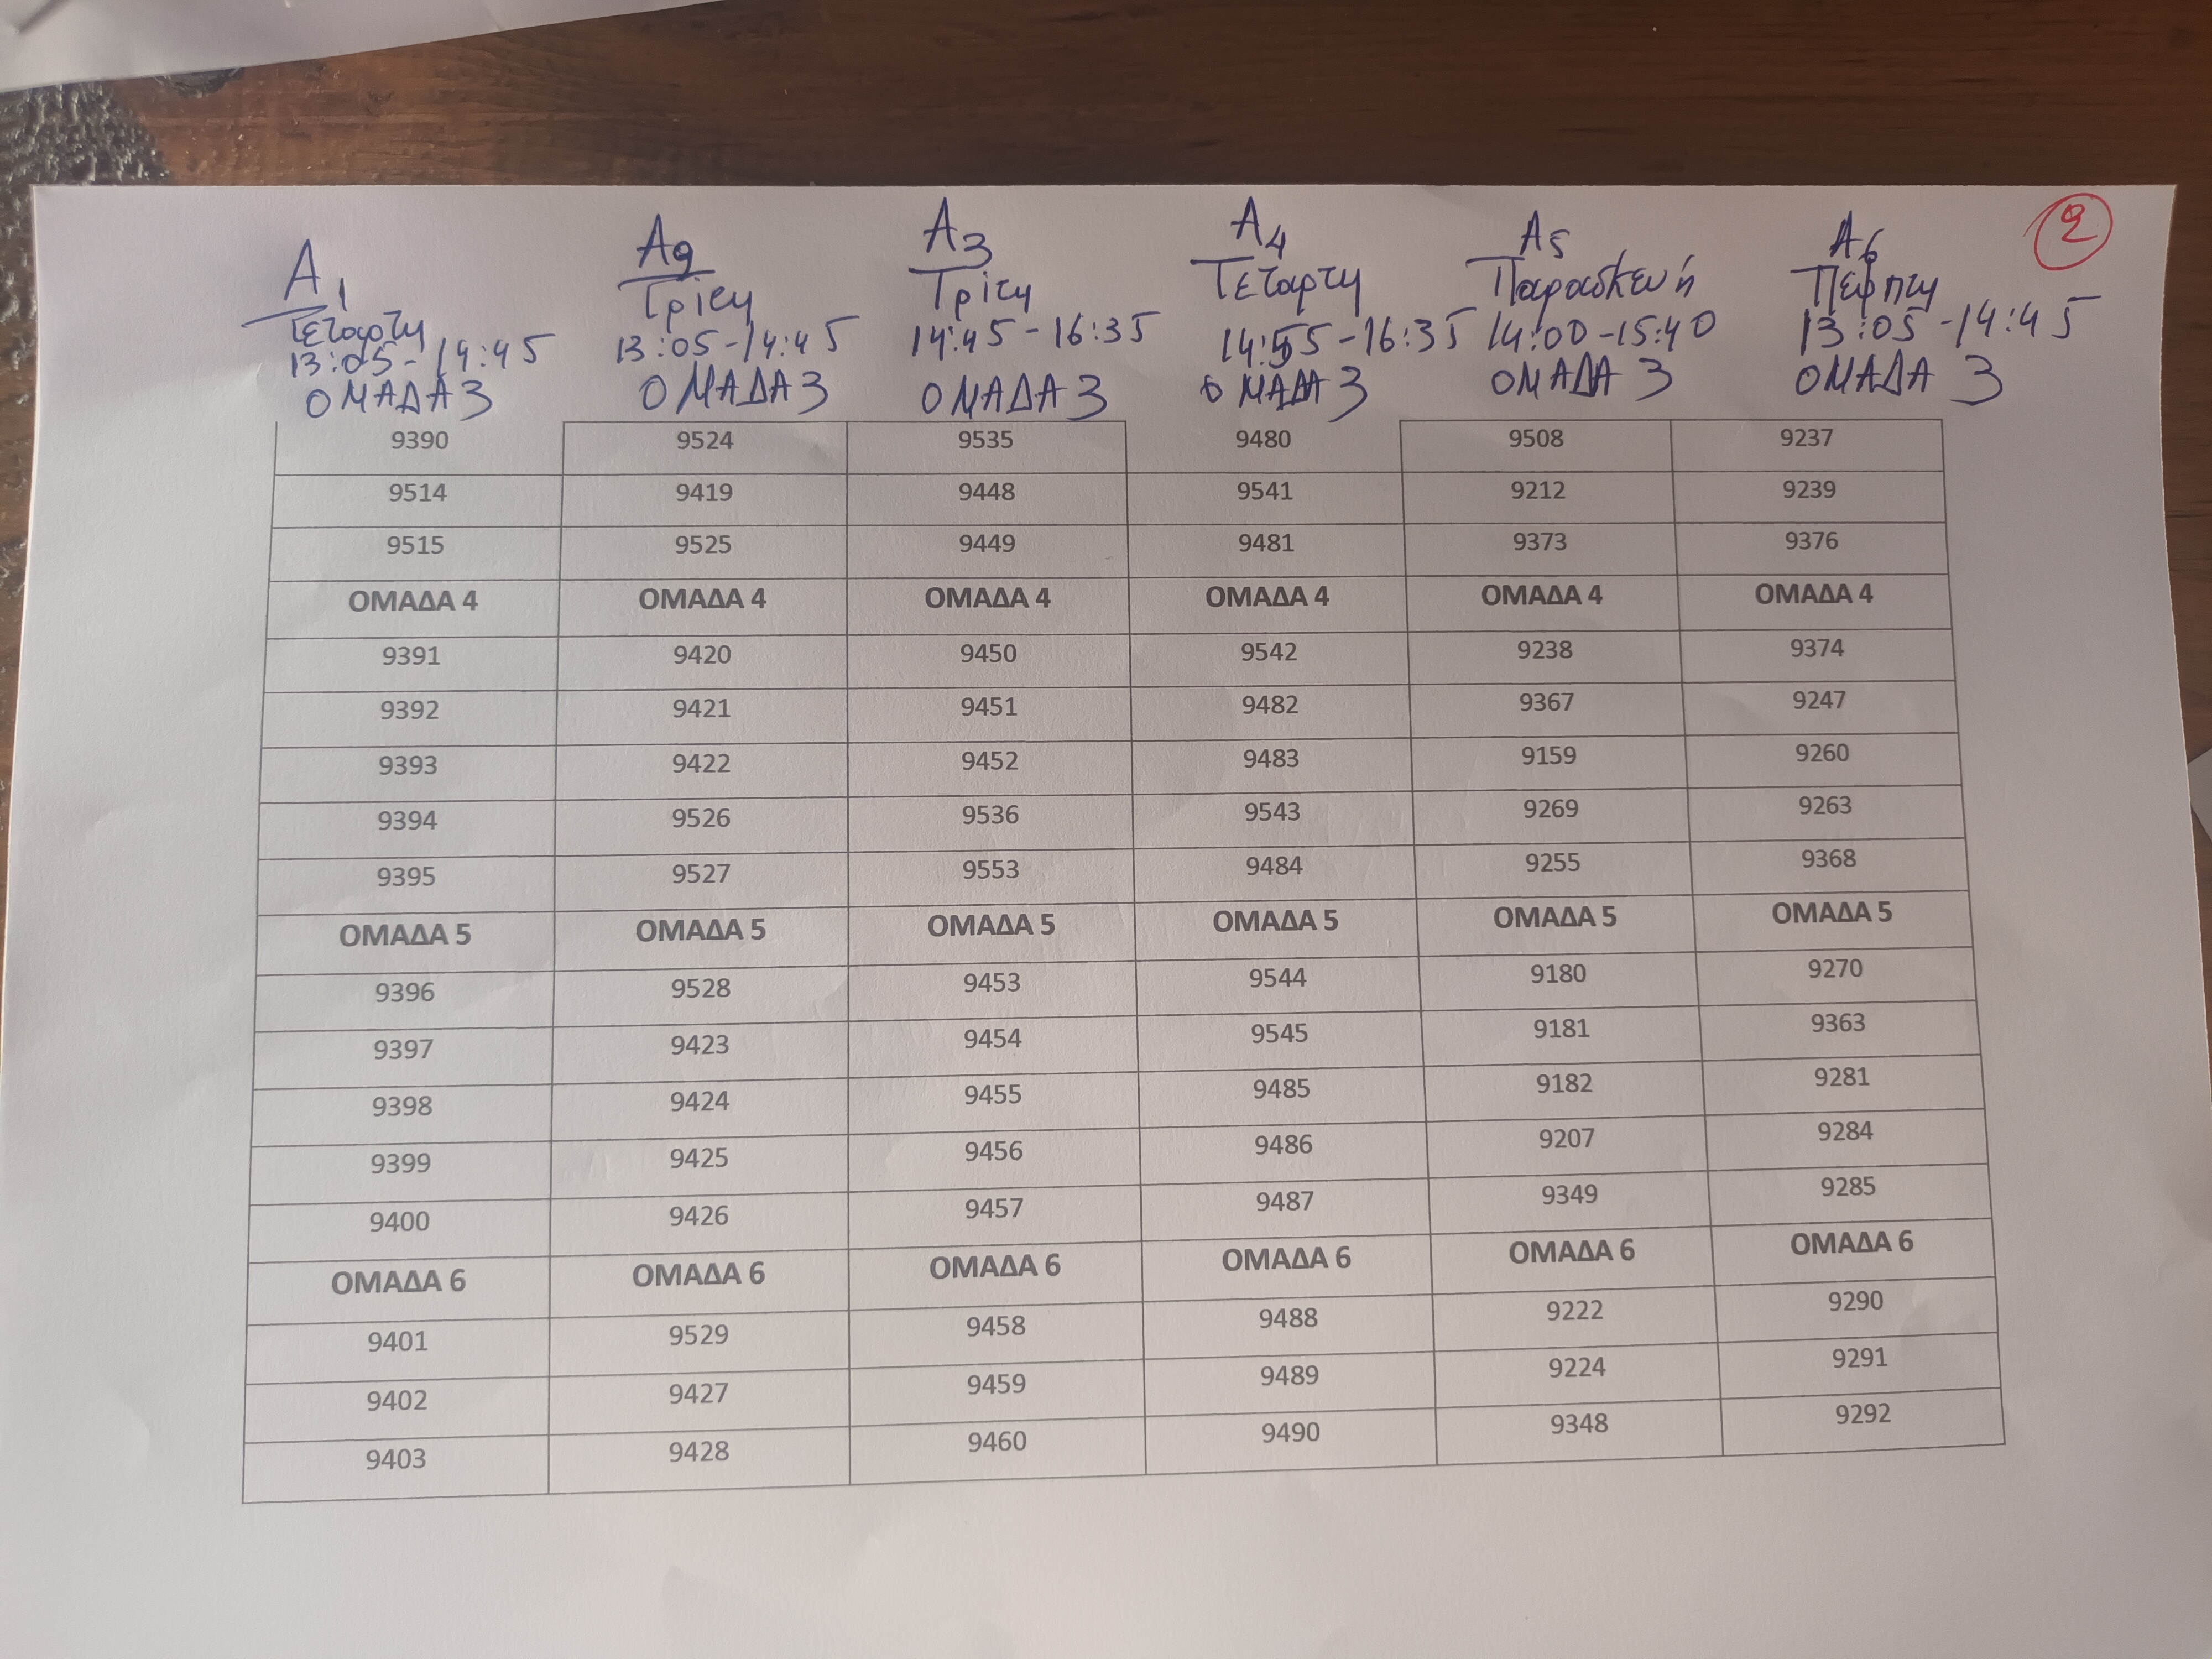 A1 A2 A3 A4 A5 A6 2
Τετάρτη Τρίτη Τρίτη Τετάρτη Παρασκευή Πέμπτη
13:05-14:45 13:05-14:45 14:45-16:35 14:55-16:35 14:00-15:40 13:05-14:45
ΟΜΑΔΑ 3 ΟΜΑΔΑ 3 ΟΜΑΔΑ 3 ΟΜΑΔΑ 3 ΟΜΑΔΑ 3 ΟΜΑΔΑ 3
9390 9524 9535 9480 9508 9237
9514 9419 9448 9541 9212 9239
9515 9525 9449 9481 9373 9376
ΟΜΑΔΑ 4 ΟΜΑΔΑ 4 ΟΜΑΔΑ 4 ΟΜΑΔΑ 4 ΟΜΑΔΑ 4 ΟΜΑΔΑ 4
9391 9420 9450 9542 9238 9374
9392 9421 9451 9482 9367 9247
9393 9422 9452 9483 9159 9260
9394 9526 9536 9543 9269 9263
9395 9527 9553 9484 9255 9368
ΟΜΑΔΑ 5 ΟΜΑΔΑ 5 ΟΜΑΔΑ 5 ΟΜΑΔΑ 5 ΟΜΑΔΑ 5 ΟΜΑΔΑ 5
9396 9528 9453 9544 9180 9270
9397 9423 9454 9545 9181 9363
9398 9424 9455 9485 9182 9281
9399 9425 9456 9486 9207 9284
9400 9426 9457 9487 9349 9285
ΟΜΑΔΑ 6 ΟΜΑΔΑ 6 ΟΜΑΔΑ 6 ΟΜΑΔΑ 6 ΟΜΑΔΑ 6 ΟΜΑΔΑ 6
9401 9529 9458 9488 9222 9290
9402 9427 9459 9489 9224 9291
9403 9428 9460 9490 9348 9292